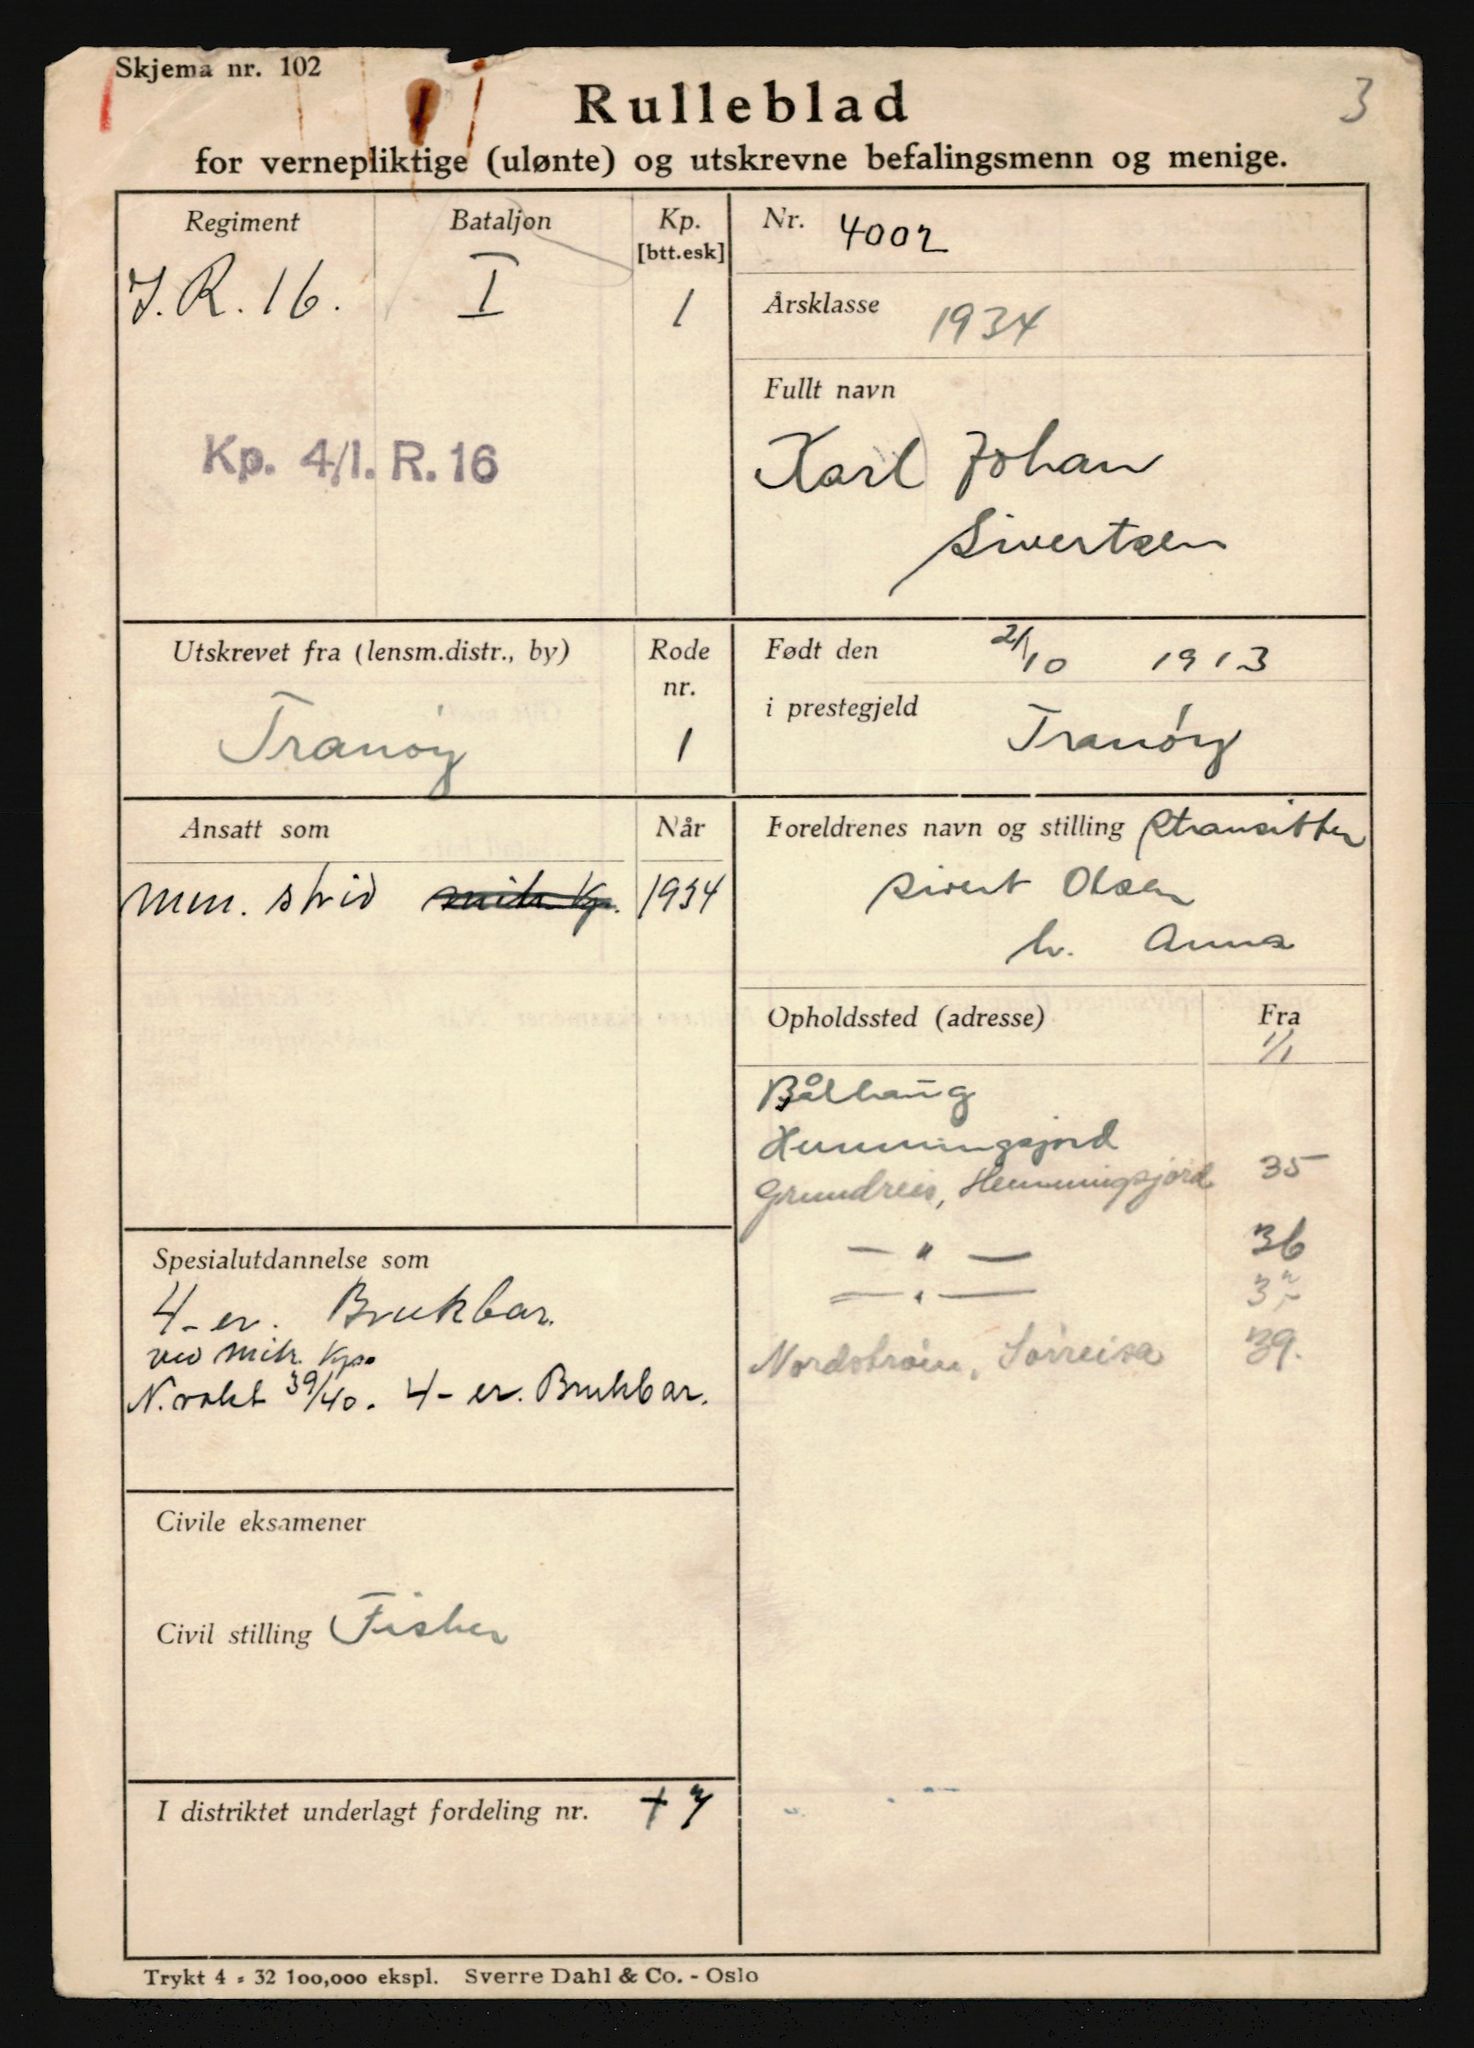 Skjema nr. 102
3
Rulleblad
for vernepliktige (ulønte) og utskrevne befalingsmenn og menige.
Regiment Bataljon Kp. [btt.esk]
I.R. 16. I 1
Kp. 4/I. R. 16
Nr. 4002
Årsklasse 1934
Fullt navn
Karl Johan
Sivertsen
Utskrevet fra (lensm.distr., by) Rode nr.
Tranöy 1
Født den 2/10 1913
i prestegjeld Tranöy
Ansatt som Når
men. strid mitr. Kp. 1934
Foreldrenes navn og stilling Stransitter
Sivert Olsen
h. Anna
Opholdssted (adresse) Fra 1/1
Bålhaug
Hemmingsjord
Grundreis, Hemmingsjord 35
— " — 36
— " —
Nordstrøm, Sørreisa 39.
Spesialutdannelse som
4-er. Brukbar.
ved mitr. Kp.
N.vakt 39/40. 4-er. Brukbar.
Civile eksamener
Civil stilling Fisker
I distriktet underlagt fordeling nr. + 7
Trykt 4 - 32 100,000 ekspl. Sverre Dahl & Co. - Oslo